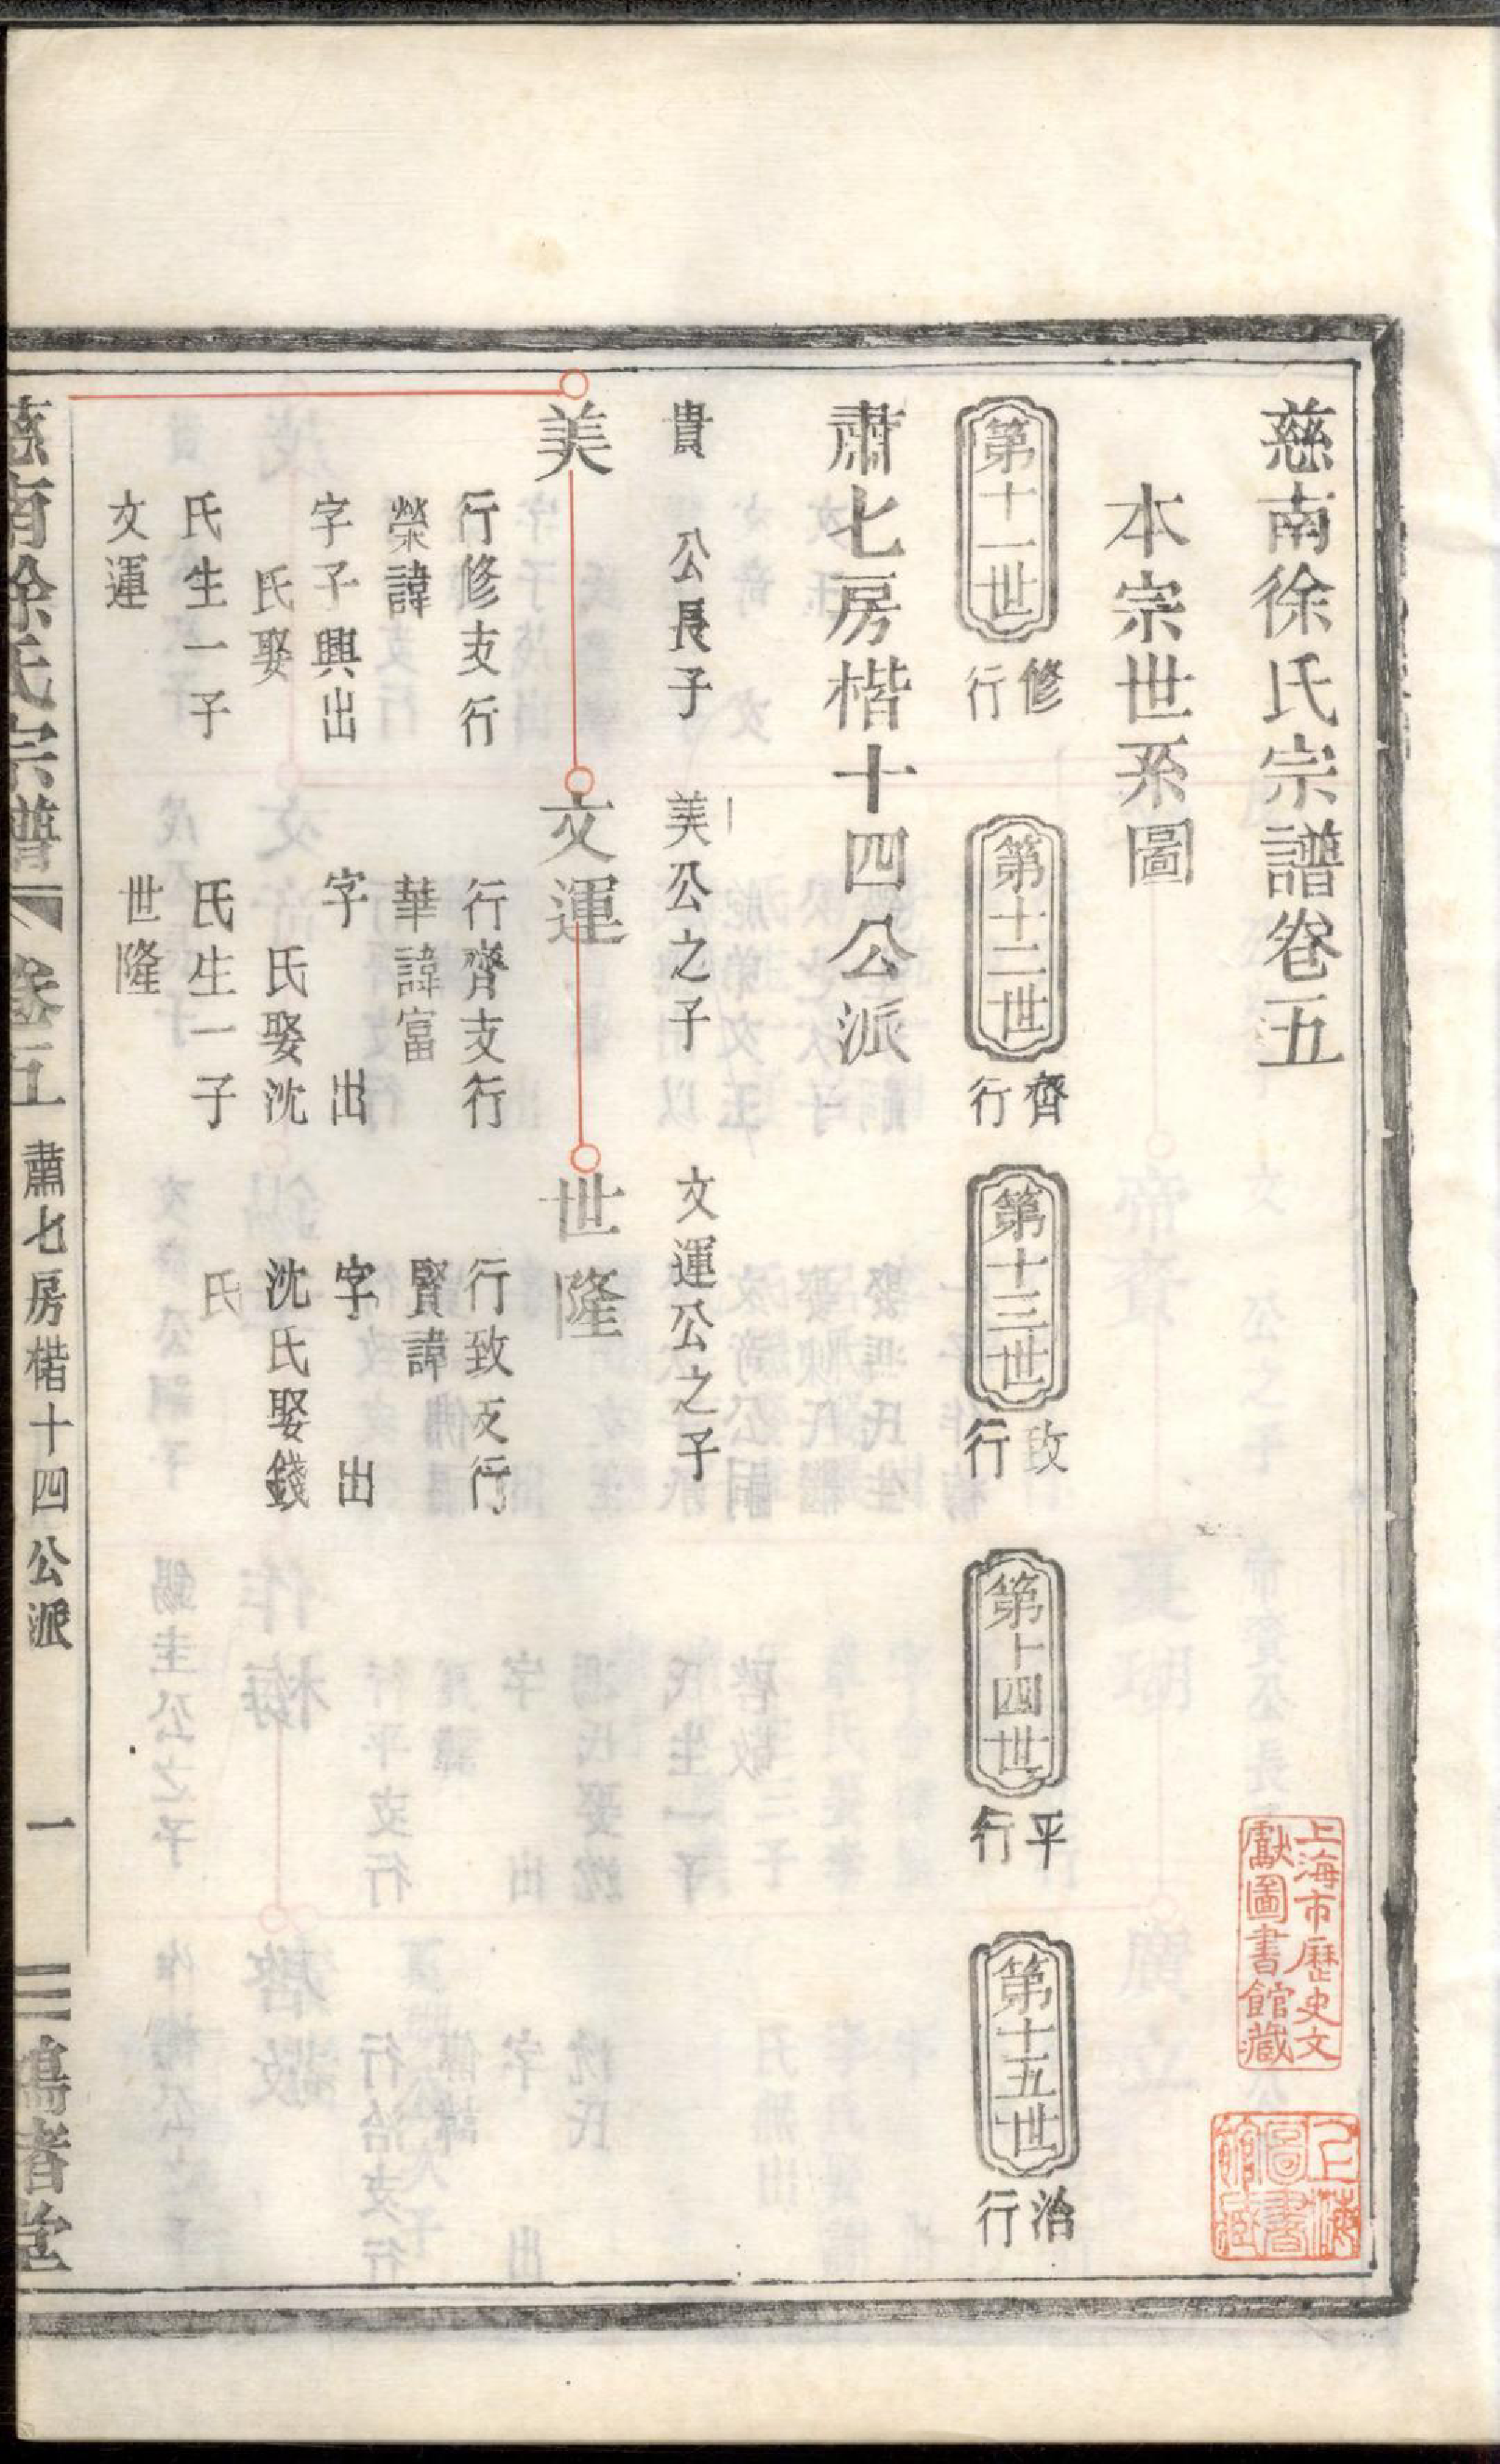 慈南徐氏宗譜卷五
本宗世系圖
第十一世
修行
第十二世
齊行
第十三世
致行
第十四世
平行
第十五世
治行
肅七房楷十四公派
貴 公長子
美公之子
文運公之子
美
文運
世隆
行修支行
榮諱
字子興出
氏娶
氏生一子
文運
行齊支行
華諱富
字 出
氏娶沈
氏生一子
世隆
行致支行
賢諱
字 出
沈氏娶錢
氏
慈南徐氏宗譜 卷五 肅七房楷十四公派 一
上海市歷史文
獻圖書館藏
上海
圖書
館藏